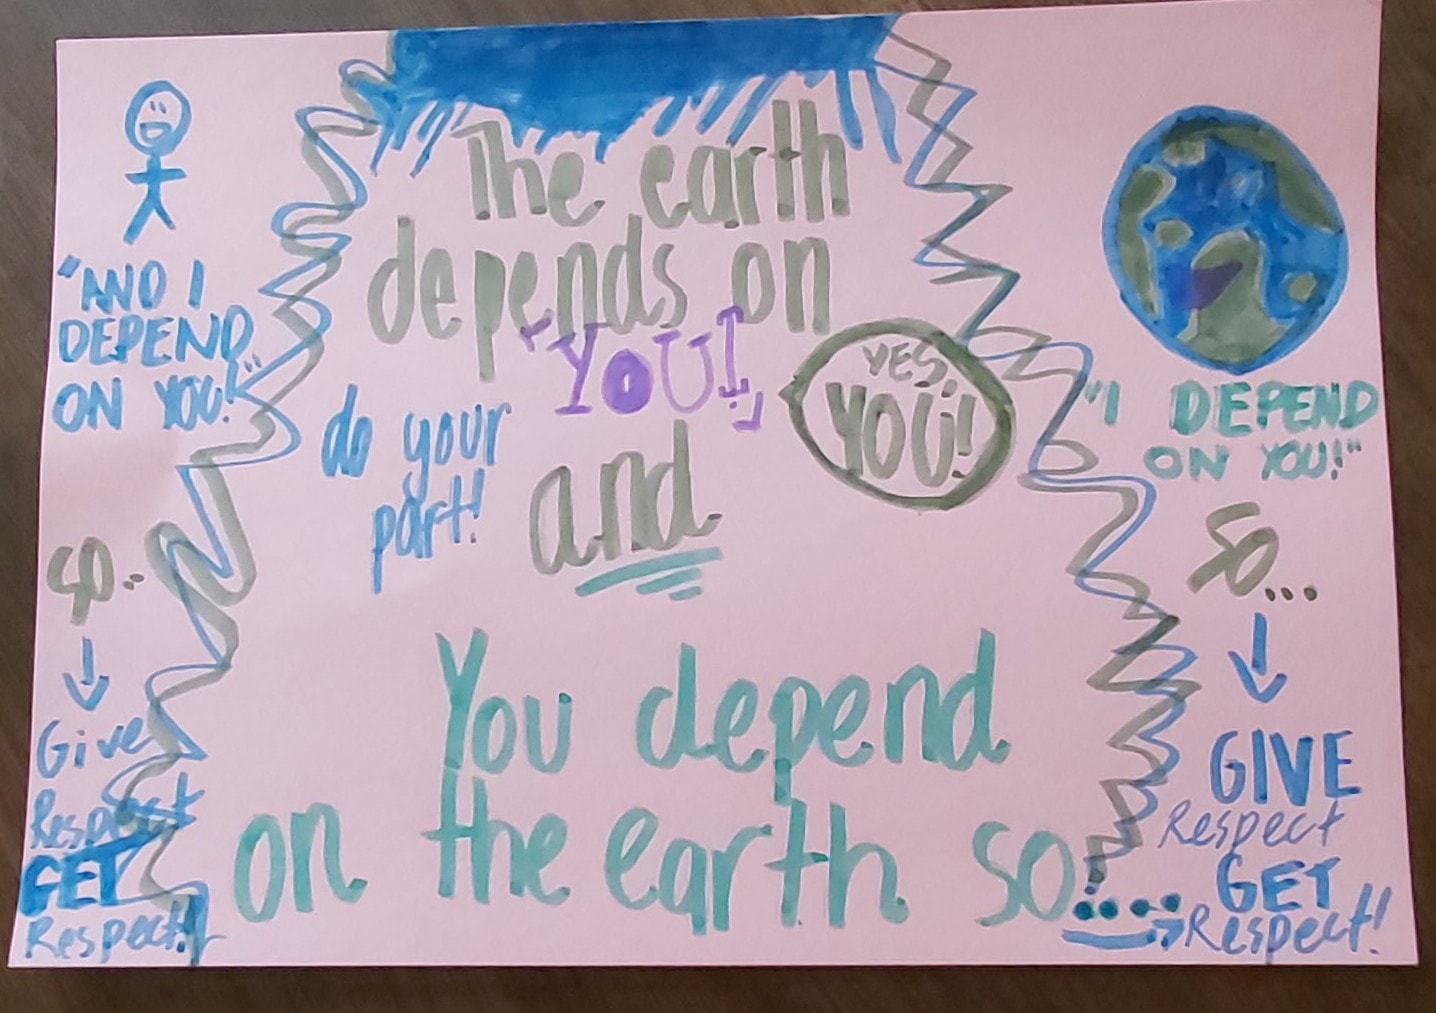 The earth
depends on
"YOU!"
YES,
YOU!
do your
part!
and
You depend
on the earth so....
"AND I
DEPEND
ON YOU!"
so..
Give
Respect
GET
Respect!
"I DEPEND
ON YOU!"
So...
GIVE
Respect
GET
Respect!